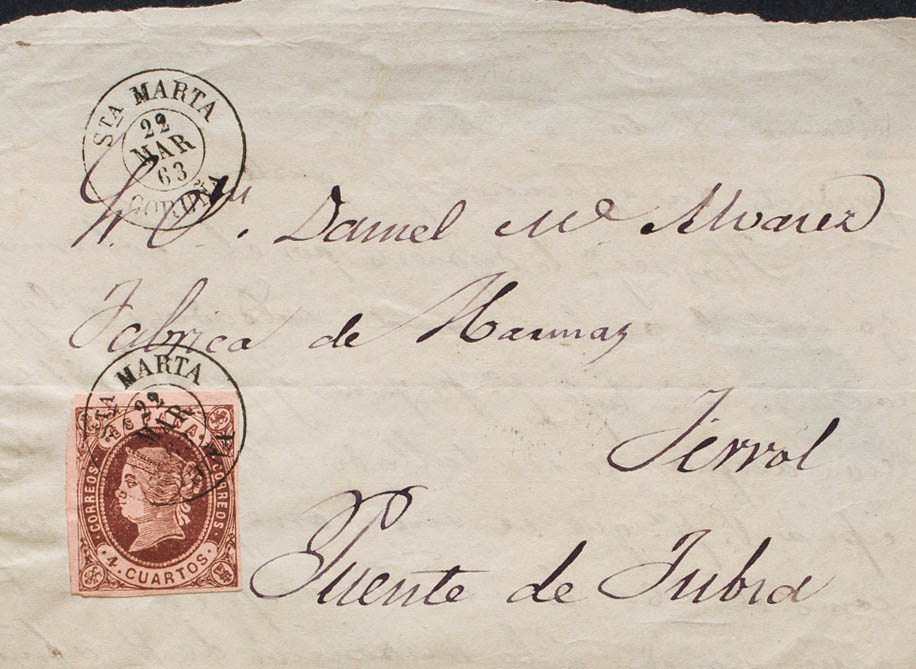 STA MARTA
22
MAR
63
CORUÑA
Daniel Mª Alvarez
Fabrica de
Ferrol
Puente de Jubia
STA MARTA
22
MAR
ESPAÑA
CORREOS
CORREOS
4. CUARTOS.